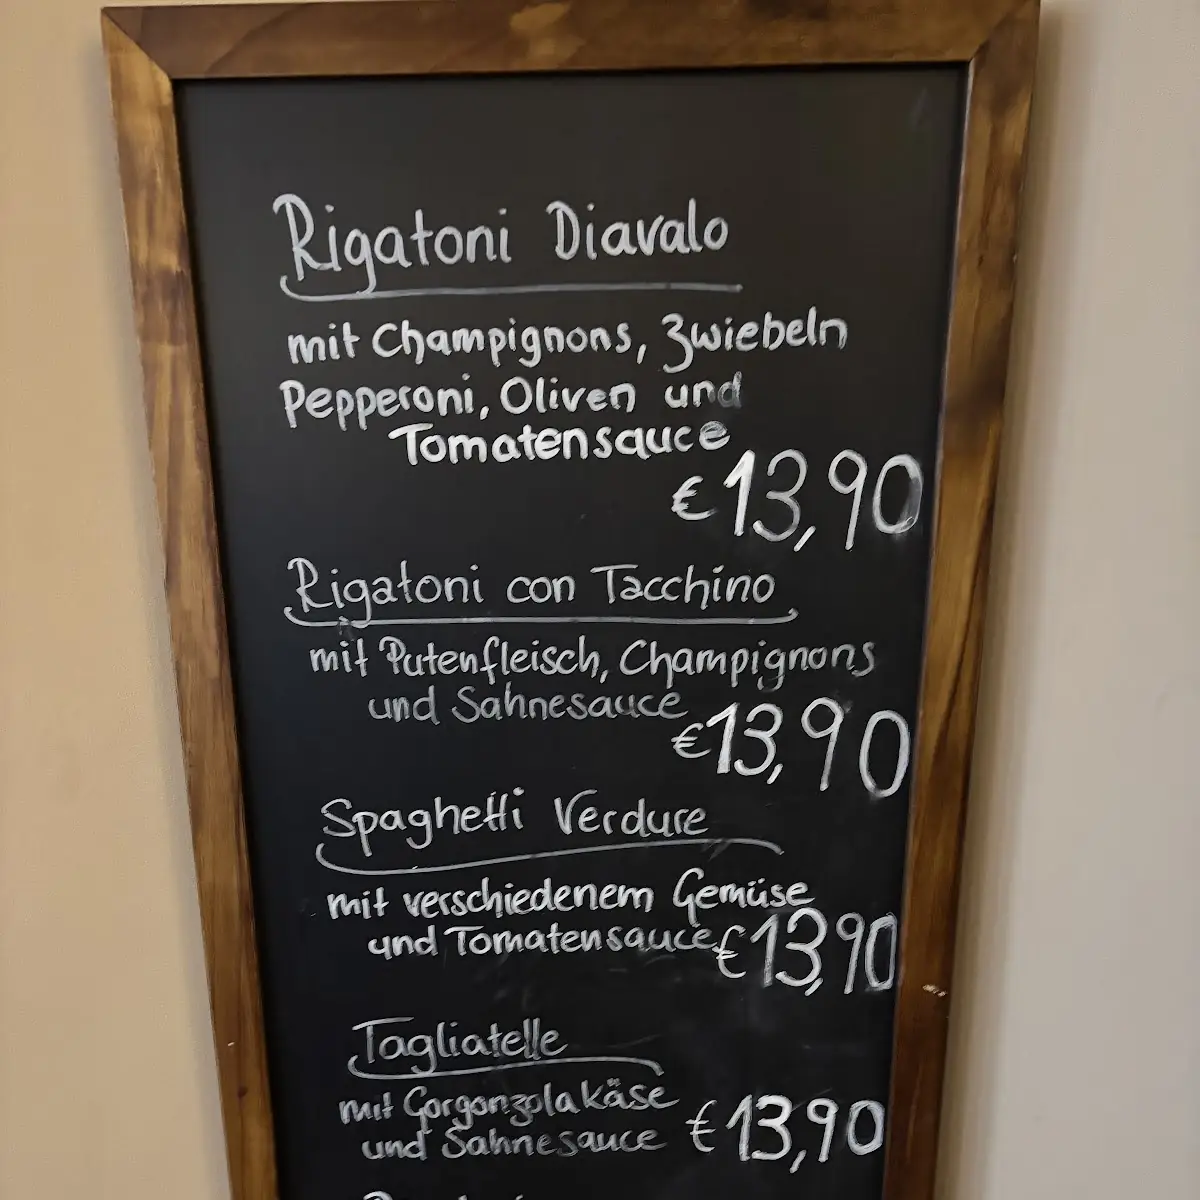 Rigatoni Diavalo
mit Champignons, Zwiebeln
Pepperoni, Oliven und
Tomatensauce
€13,90
Rigatoni con Tacchino
mit Putenfleisch, Champignons
und Sahnesauce
€13,90
Spaghetti Verdure
mit verschiedenem Gemüse
und Tomatensauce €13,90
Tagliatelle
mit Gorgonzolakäse
und Sahnesauce €13,90